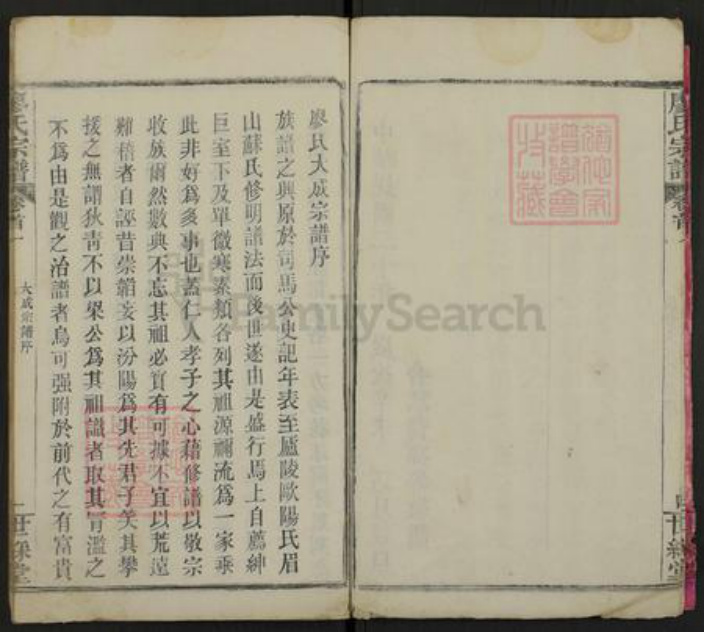 廖氏宗譜 卷首一
世綵堂
廖氏大成宗譜序
族譜之興原於司馬公史記年表至廬陵歐陽氏眉
山蘇氏修明譜法而後世遂由是盛行焉上自薦紳
巨室下及單微寒素類各列其祖源禰流為一家乘
此非好為多事也蓋仁人孝子之心藉修譜以敬宗
收族爾然數典不忘其祖必實有可據不宜以荒遠
難稽者自誣昔崇韜妄以汾陽為其先君子笑其攀
援之無謂狄青不以梁公為其祖識者取其冒濫之
不為由是觀之治譜者烏可强附於前代之有富貴
廖氏宗譜 卷首一
大成宗譜序
一
世綵堂
FamilySearch